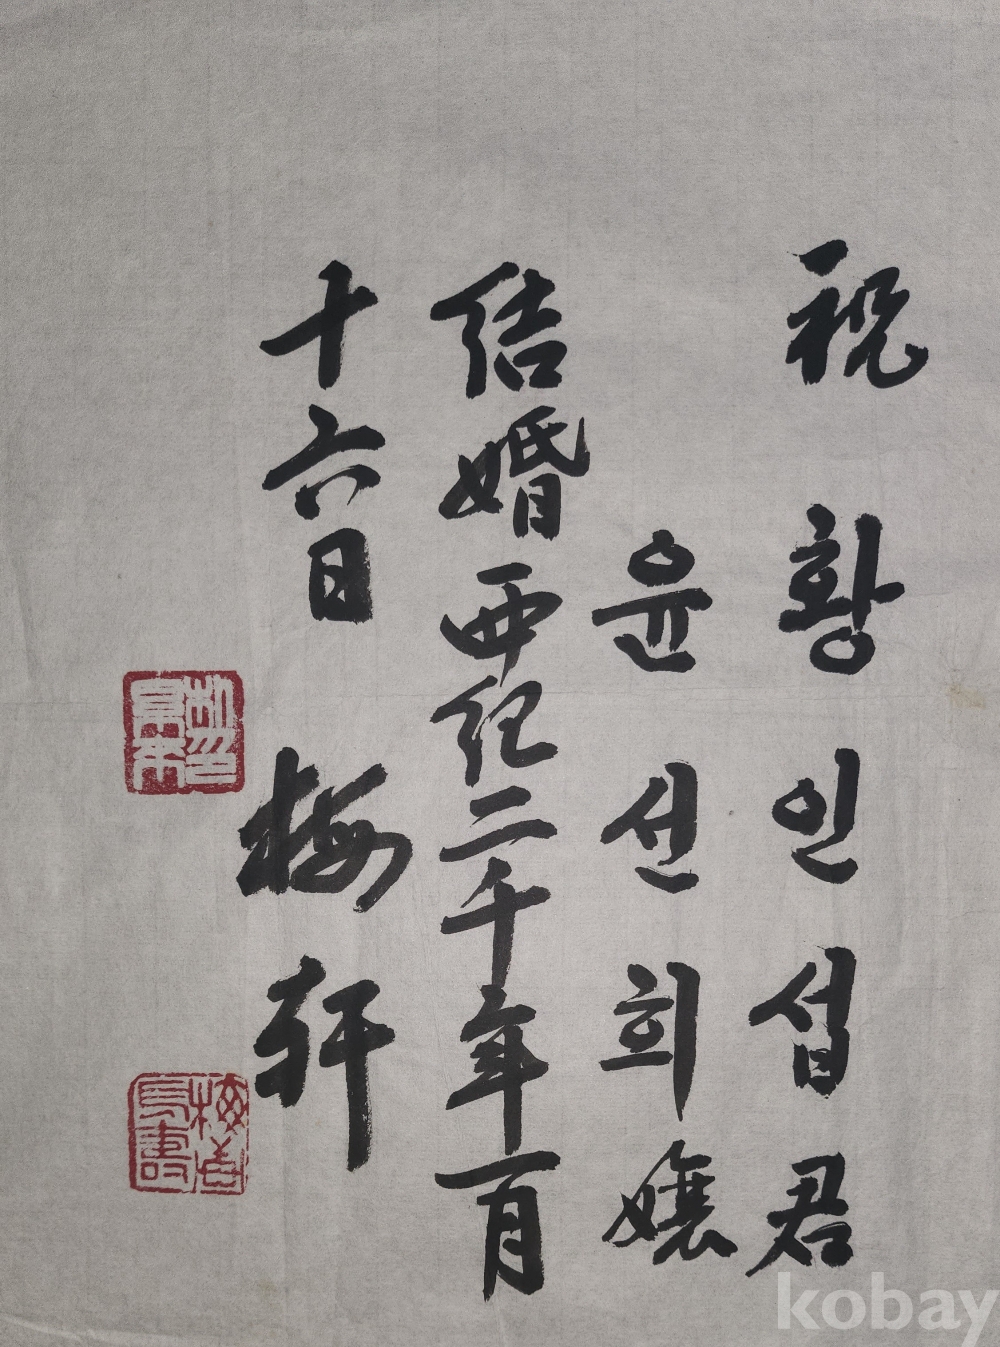 祝 황인섭君
윤선희嬢
結婚 西紀二千年一月
十六日 梅軒
kobay